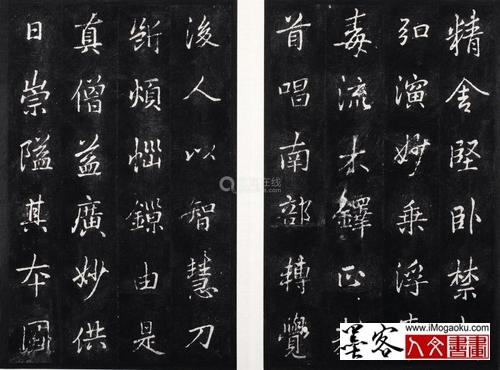 精舍堅卧禁
弘演妙乘浮
毒流木鐸正
首唱南部轉覺
後人以智慧刀
斷煩惱鏁由是
真僧益廣妙供
日崇隘其夲圖
墨客
www.iMogaoku.com
人文書畫